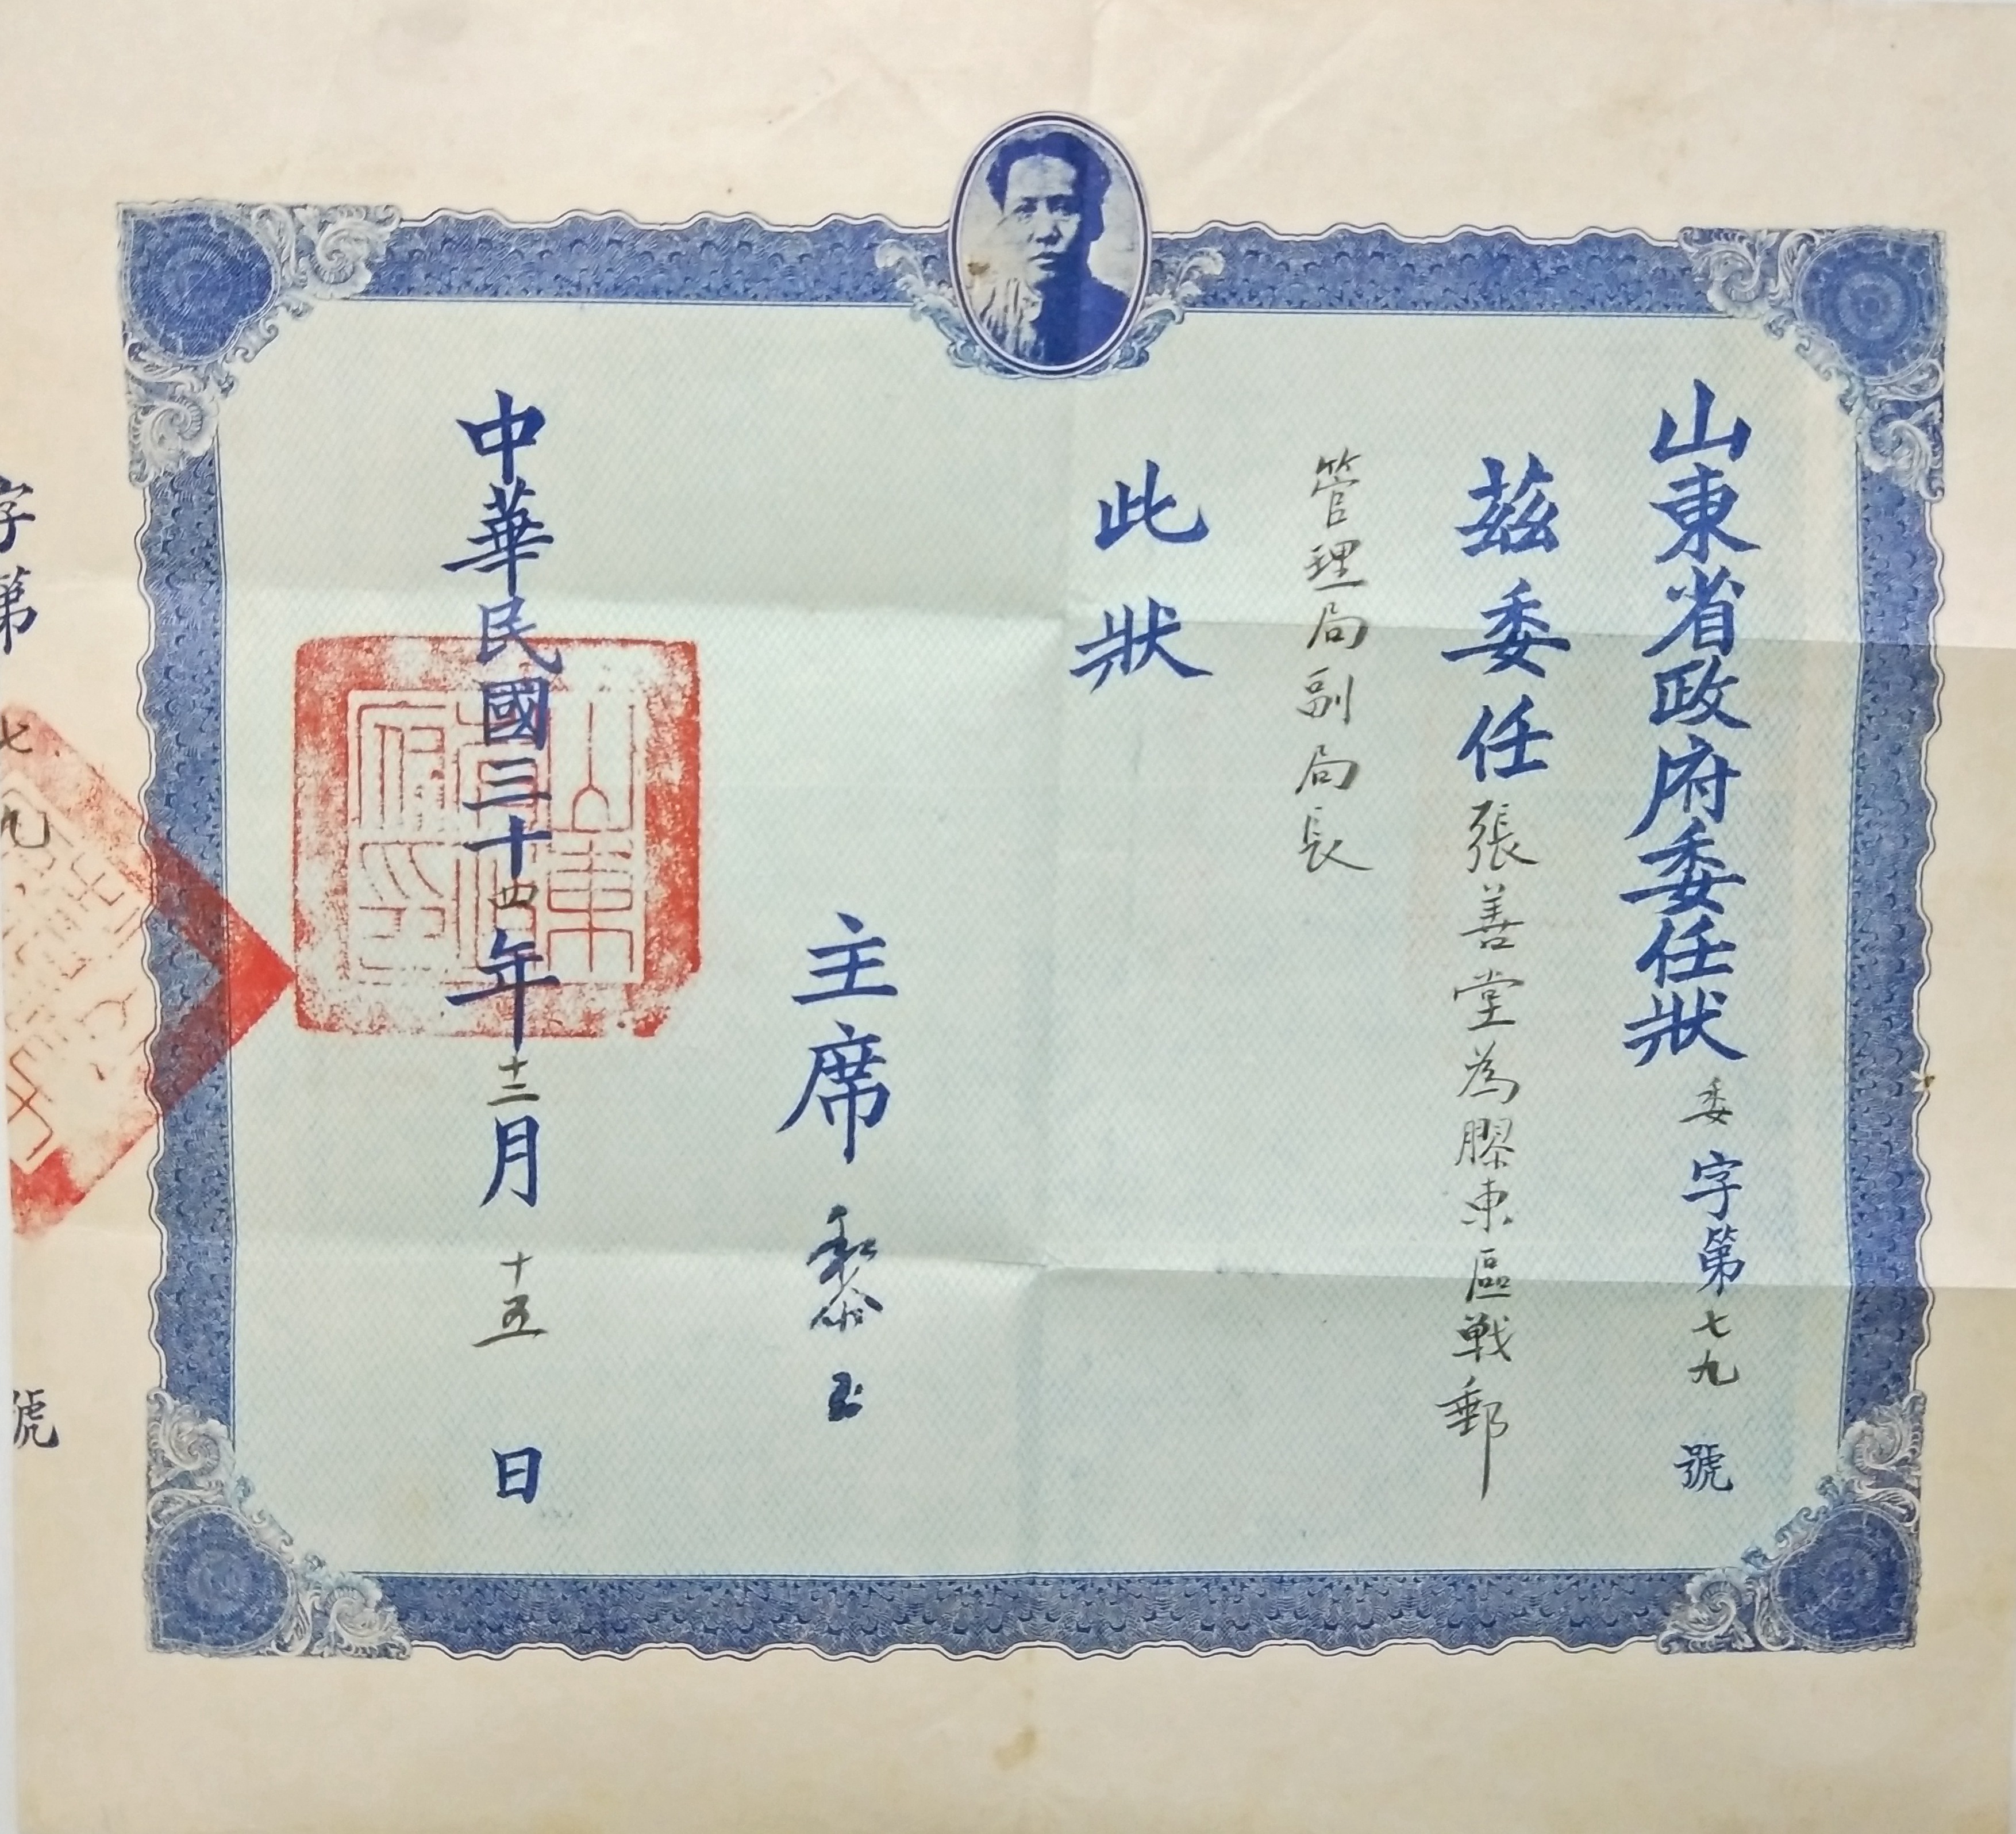 山東省政府委任狀 委字第七九號
茲委任張善堂為膠東區戰郵
管理局副局長
此狀
主席 黎玉
中華民國三十四年十二月十五日
山東省政府印
字第七九號